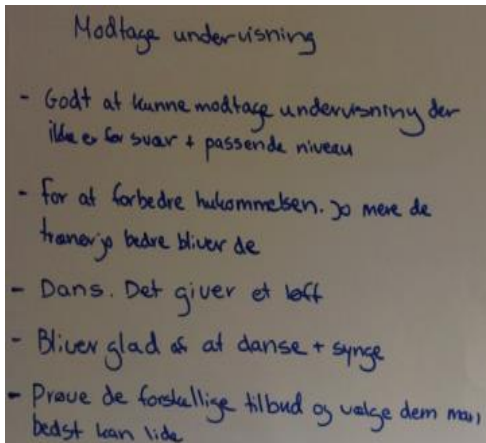 Modtage undervisning
- Godt at kunne modtage undervisning der
ikke er for svær + passende niveau
- for at forbedre hukommelsen. Jo mere de
træner jo bedre bliver de
- Dans. Det giver et løft
- Bliver glad af at danse + synge
- Prøve de forskellige tilbud og vælge dem man
bedst kan lide